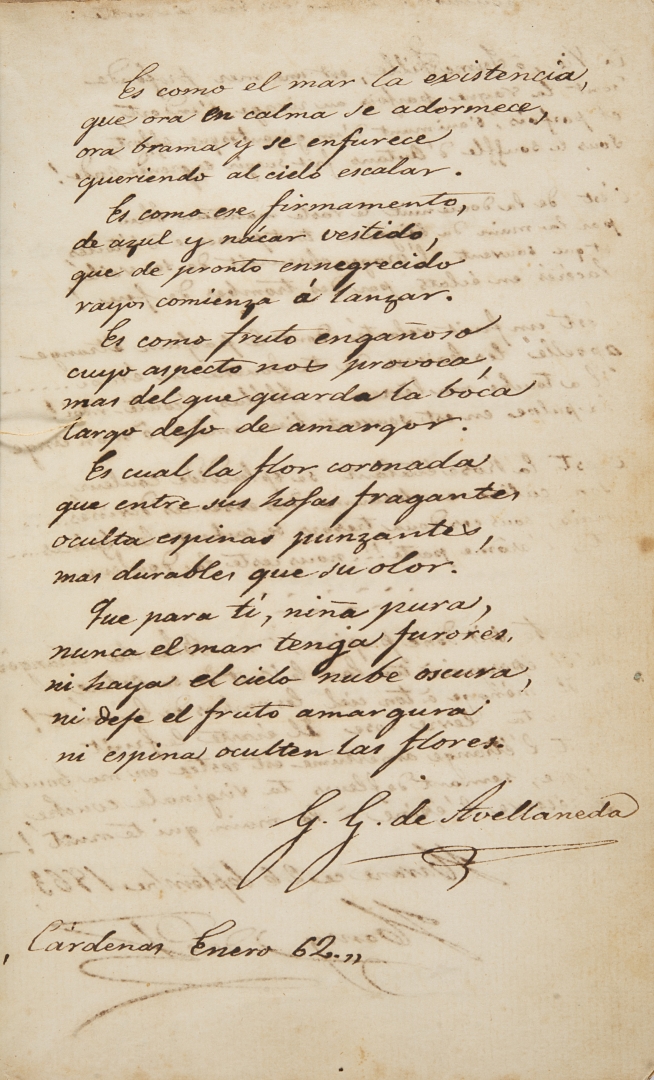 Es como el mar la existencia,
que ora en calma se adormece,
ora brama y se enfurece
queriendo al cielo escalar.
Es como ese firmamento,
de azul y nácar vestido,
que de pronto ennegrecido
rayos comienza á lanzar.
Es como fruto engañoso
cuyo aspecto nos provoca,
mas del que guarda la boca
largo dejo de amargor.
Es cual la flor coronada
que entre sus hojas fragantes
oculta espinas punzantes,
mas durables que su olor.
Que para tí, niña pura,
nunca el mar tenga furores,
ni haya el cielo nube oscura,
ni deje el fruto amargura
ni espina oculten las flores.
G. G. de Avellaneda
Cárdenas Enero 62.,,